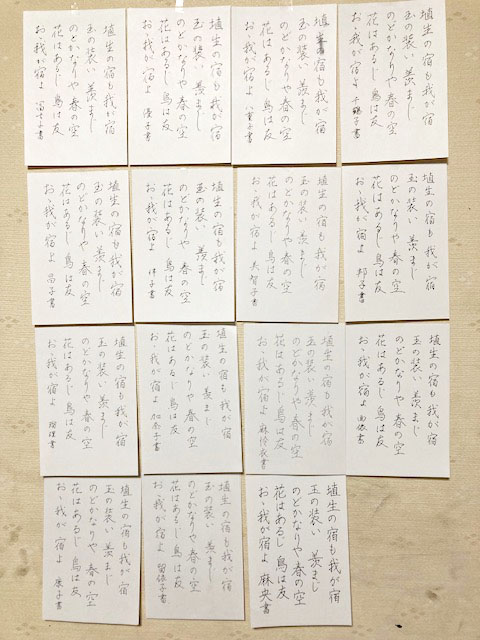 埴生の宿も我が宿
玉の装い 羨まじ
のどかなりや 春の空
花はあるじ 鳥は友
おゝ我が宿よ 千鶴子書
埴生の宿も我が宿
玉の装い 羨まじ
のどかなりや 春の空
花はあるじ 鳥は友
おゝ我が宿よ 八重子書
埴生の宿も我が宿
玉の装い 羨まじ
のどかなりや 春の空
花はあるじ 鳥は友
おゝ我が宿よ 優子書
埴生の宿も我が宿
玉の装い 羨まじ
のどかなりや 春の空
花はあるじ 鳥は友
おゝ我が宿よ 富士子書
埴生の宿も我が宿
玉の装い 羨まじ
のどかなりや 春の空
花はあるじ 鳥は友
おゝ我が宿よ 邦子書
埴生の宿も我が宿
玉の装い 羨まじ
のどかなりや 春の空
花はあるじ 鳥は友
おゝ我が宿よ 美智子書
埴生の宿も我が宿
玉の装い 羨まじ
のどかなりや 春の空
花はあるじ 鳥は友
おゝ我が宿よ
埴生の宿も我が宿
玉の装い 羨まじ
のどかなりや 春の空
花はあるじ 鳥は友
おゝ我が宿よ 昌子書
埴生の宿も我が宿
玉の装い 羨まじ
のどかなりや 春の空
花はあるじ 鳥は友
おゝ我が宿よ
埴生の宿も我が宿
玉の装い 羨まじ
のどかなりや 春の空
花はあるじ 鳥は友
おゝ我が宿よ
埴生の宿も我が宿
玉の装い 羨まじ
のどかなりや 春の空
花はあるじ 鳥は友
おゝ我が宿よ 加奈子書
埴生の宿も我が宿
玉の装い 羨まじ
のどかなりや 春の空
花はあるじ 鳥は友
おゝ我が宿よ 瑠理書
埴生の宿も我が宿
玉の装い 羨まじ
のどかなりや 春の空
花はあるじ 鳥は友
おゝ我が宿よ 麻央書
埴生の宿も我が宿
玉の装い 羨まじ
のどかなりや 春の空
花はあるじ 鳥は友
おゝ我が宿よ 留依子書
埴生の宿も我が宿
玉の装い 羨まじ
のどかなりや 春の空
花はあるじ 鳥は友
おゝ我が宿よ 康子書